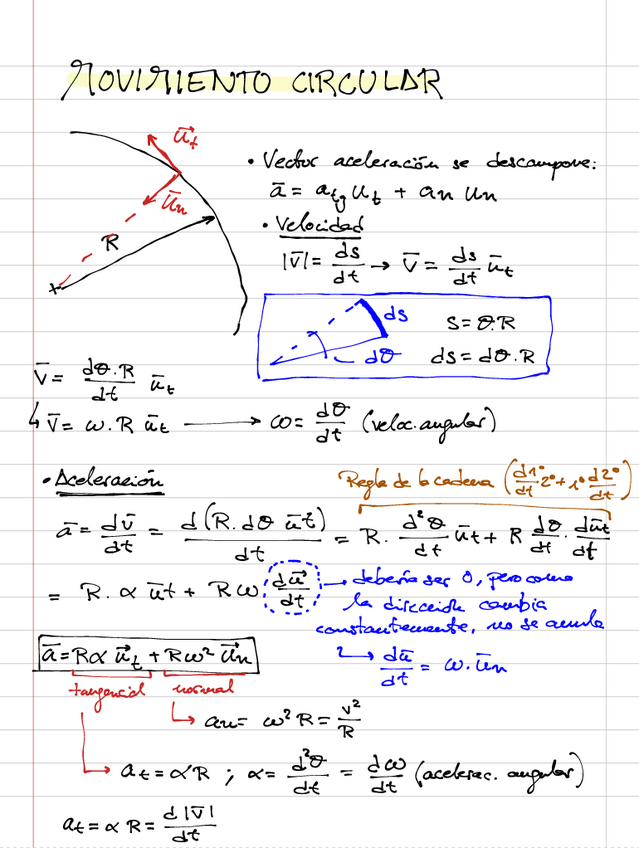 MOVIMIENTO CIRCULAR
u⃗t
ūn
R
• Vector aceleración se descompone:
ā = atg ut + an un
• Velocidad
|v̄| = ds/dt → v̄ = ds/dt ūt
ds
dθ
s = θ·R
ds = dθ·R
v̄ = dθ·R/dt ūt
↳ v̄ = ω·R ūt → ω = dθ/dt (veloc. angular)
• Aceleración
Regla de la cadena (d1º/dt 2º + 1º d2º/dt)
ā = dv̄/dt = d(R·dθ ūt)/dt = R· d²θ/dt ūt + R dθ/dt · dūt/dt
= R·α ūt + Rω (du⃗/dt) → debería ser 0, pero como
la dirección cambia
constantemente, no se anula
↳ dū/dt = ω·ūn
ā = Rα u⃗t + Rω² u⃗n
tangencial normal
↳ an = ω² R = v²/R
↳ at = αR ; α = d²θ/dt = dω/dt (acelerac. angular)
at = α R = d|v̄|/dt